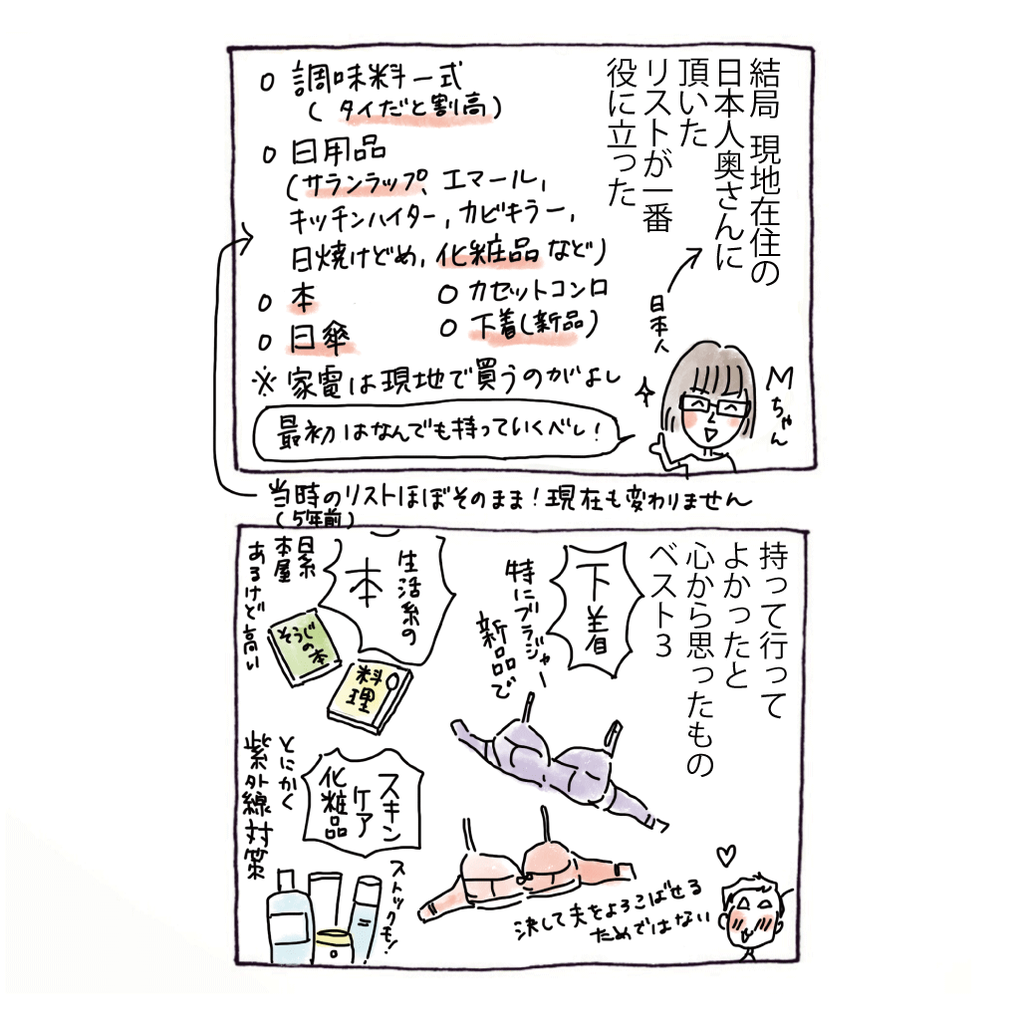 結局 現地在住の
日本人奥さんに
頂いた
リストが一番
役に立った
○ 調味料一式
(タイだと割高)
○ 日用品
(サランラップ、エマール,
キッチンハイター, カビキラー,
日焼けどめ, 化粧品など)
○ 本
○ カセットコンロ
○ 日傘
○ 下着(新品)
※ 家電は現地で買うのがよし
最初はなんでも持っていくべし!
日本人
Mちゃん
当時のリストほぼそのまま!現在も変わりません
(5年前)
持って行って
よかったと
心から思ったもの
ベスト3
下着
特にブラジャー
新品で
生活系の
本
日系
本屋
あるけど高い
そうじ
の本
料理
スキン
ケア
化粧品
とにかく
紫外線対策
ストックも!
決して夫をよろこばせる
ためではない